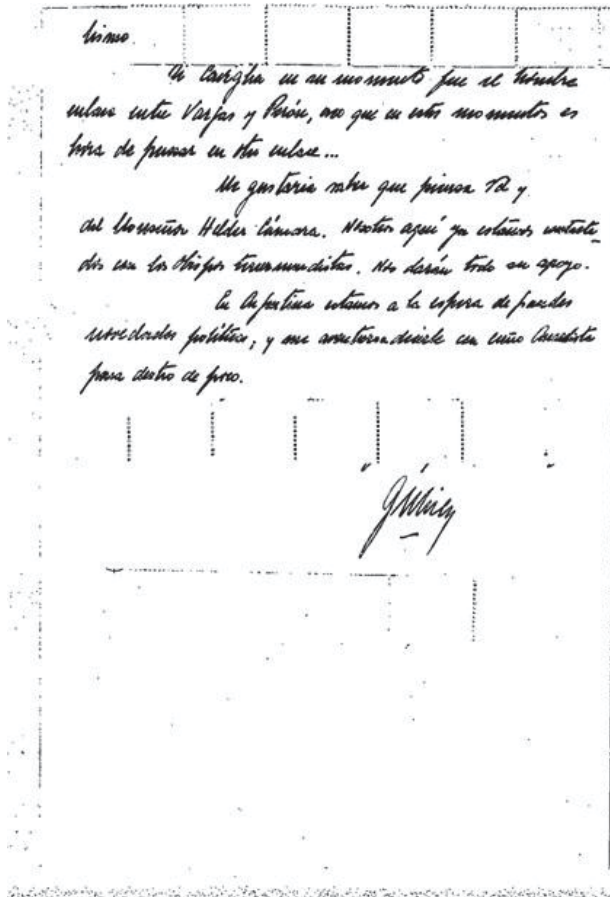 lismo.
Si Caviglia en su momento fue el hombre
enlace entre Vargas y Perón, creo que en estos momentos es
hora de pensar en otro enlace...
Me gustaria saber que piensa Vd y
del Monseñor Helder Cámara. Nosotros aquí ya estamos contacta-
dos con los Obispos tercermundistas. Nos darán todo su apoyo.
En Argentina estamos a la espera de grandes
novedades políticas, y me aventuraria decirle con cuño Oncedista
para dentro de poco.